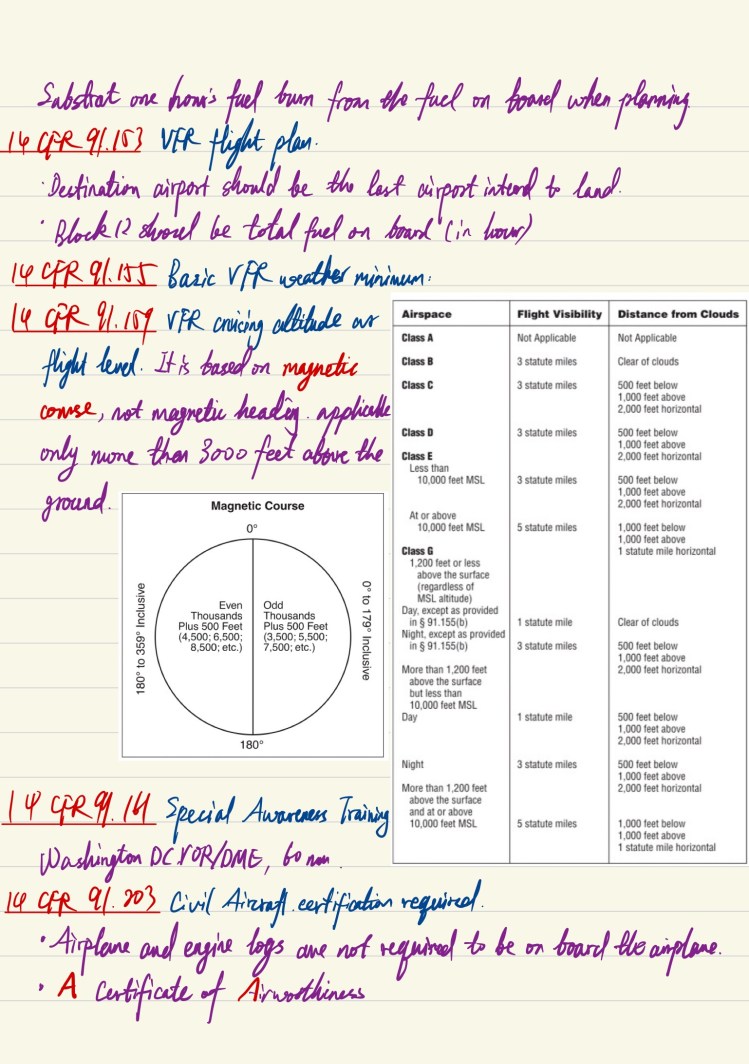 Substrat one hour's fuel burn from the fuel on board when planning
14 CFR 91.153 VFR flight plan.
· Destination airport should be the last airport intend to land.
· Block 12 should be total fuel on board (in hour)
14 CFR 91.155 Basic VFR weather minimum:
14 CFR 91.159 VFR cruising altitude or
flight level. It is based on magnetic
course, not magnetic heading. applicable
only more than 3000 feet above the
ground.
Magnetic Course
0°
180° to 359° Inclusive
Even
Thousands
Plus 500 Feet
(4,500; 6,500;
8,500; etc.)
Odd
Thousands
Plus 500 Feet
(3,500; 5,500;
7,500; etc.)
0° to 179° Inclusive
180°
Airspace Flight Visibility Distance from Clouds
Class A Not Applicable Not Applicable
Class B 3 statute miles Clear of clouds
Class C 3 statute miles 500 feet below
1,000 feet above
2,000 feet horizontal
Class D 3 statute miles 500 feet below
1,000 feet above
Class E 2,000 feet horizontal
Less than
10,000 feet MSL 3 statute miles 500 feet below
1,000 feet above
2,000 feet horizontal
At or above
10,000 feet MSL 5 statute miles 1,000 feet below
1,000 feet above
Class G 1 statute mile horizontal
1,200 feet or less
above the surface
(regardless of
MSL altitude)
Day, except as provided
in § 91.155(b) 1 statute mile Clear of clouds
Night, except as provided
in § 91.155(b) 3 statute miles 500 feet below
1,000 feet above
More than 1,200 feet 2,000 feet horizontal
above the surface
but less than
10,000 feet MSL
Day 1 statute mile 500 feet below
1,000 feet above
2,000 feet horizontal
Night 3 statute miles 500 feet below
1,000 feet above
More than 1,200 feet 2,000 feet horizontal
above the surface
and at or above
10,000 feet MSL 5 statute miles 1,000 feet below
1,000 feet above
1 statute mile horizontal
14 CFR 91.161 Special Awareness Training
Washington DC VOR/DME, 60 nm.
14 CFR 91.203 Civil Aircraft certification required.
· Airplane and engine logs are not required to be on board the airplane.
· A Certificate of Airworthiness